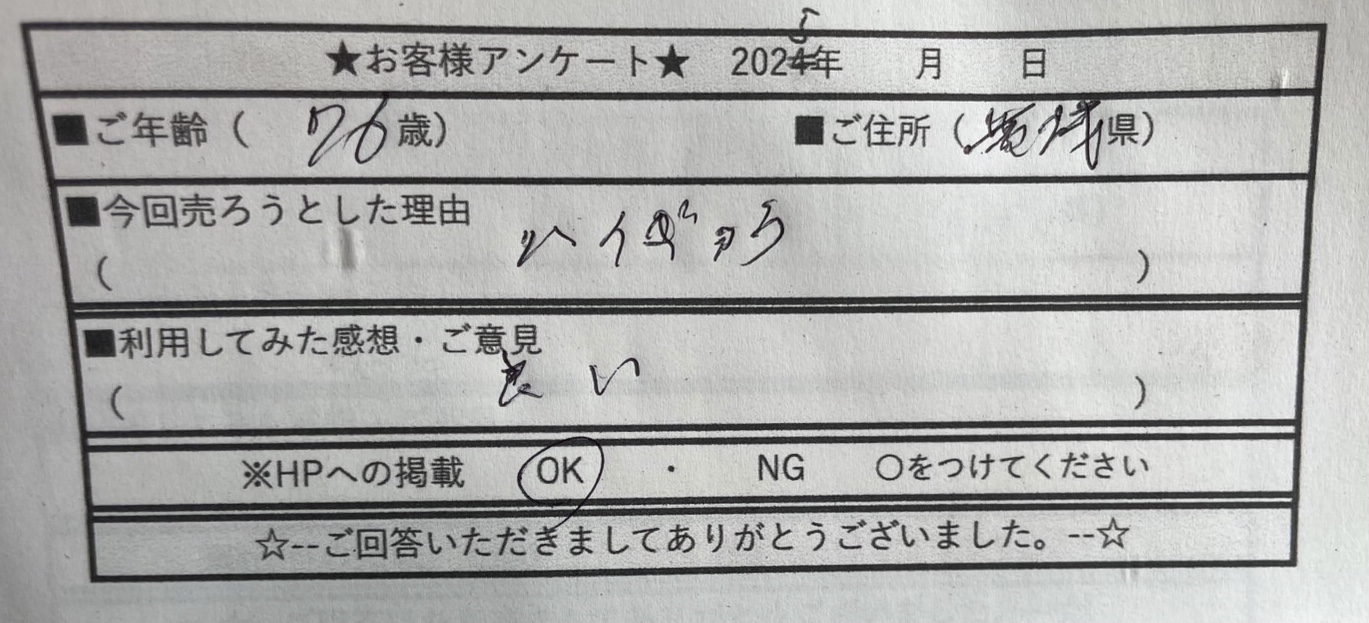 ★お客様アンケート★ 2025年 月 日
■ご年齢（ 76歳） ■ご住所（茨城県）
■今回売ろうとした理由
（ ）
■利用してみた感想・ご意見
（ 良い ）
※HPへの掲載 OK ・ NG ○をつけてください
☆--ご回答いただきましてありがとうございました。--☆